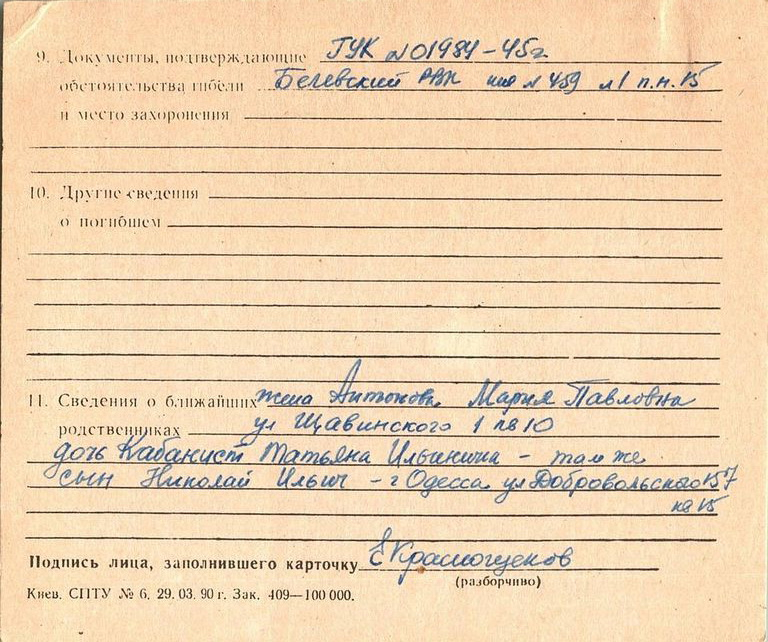 9. Документы, подтверждающие ГУК №01984-45г
обстоятельства гибели Бегевский РВК №459 л1 п.н.15
и место захоронения
10. Другие сведения
о погибшем
11. Сведения о ближайших жена Антонова Мария Павловна
родственниках ул Щавинского 1 кв 10
дочь Кабанист Татьяна Ильинична - там же
сын Николай Ильич - г Одесса ул Добровольского 157
кв 15
Подпись лица, заполнившего карточку ЕКраснощеков
(разборчиво)
Киев. СПТУ № 6. 29. 03. 90 г. Зак. 409—100 000.